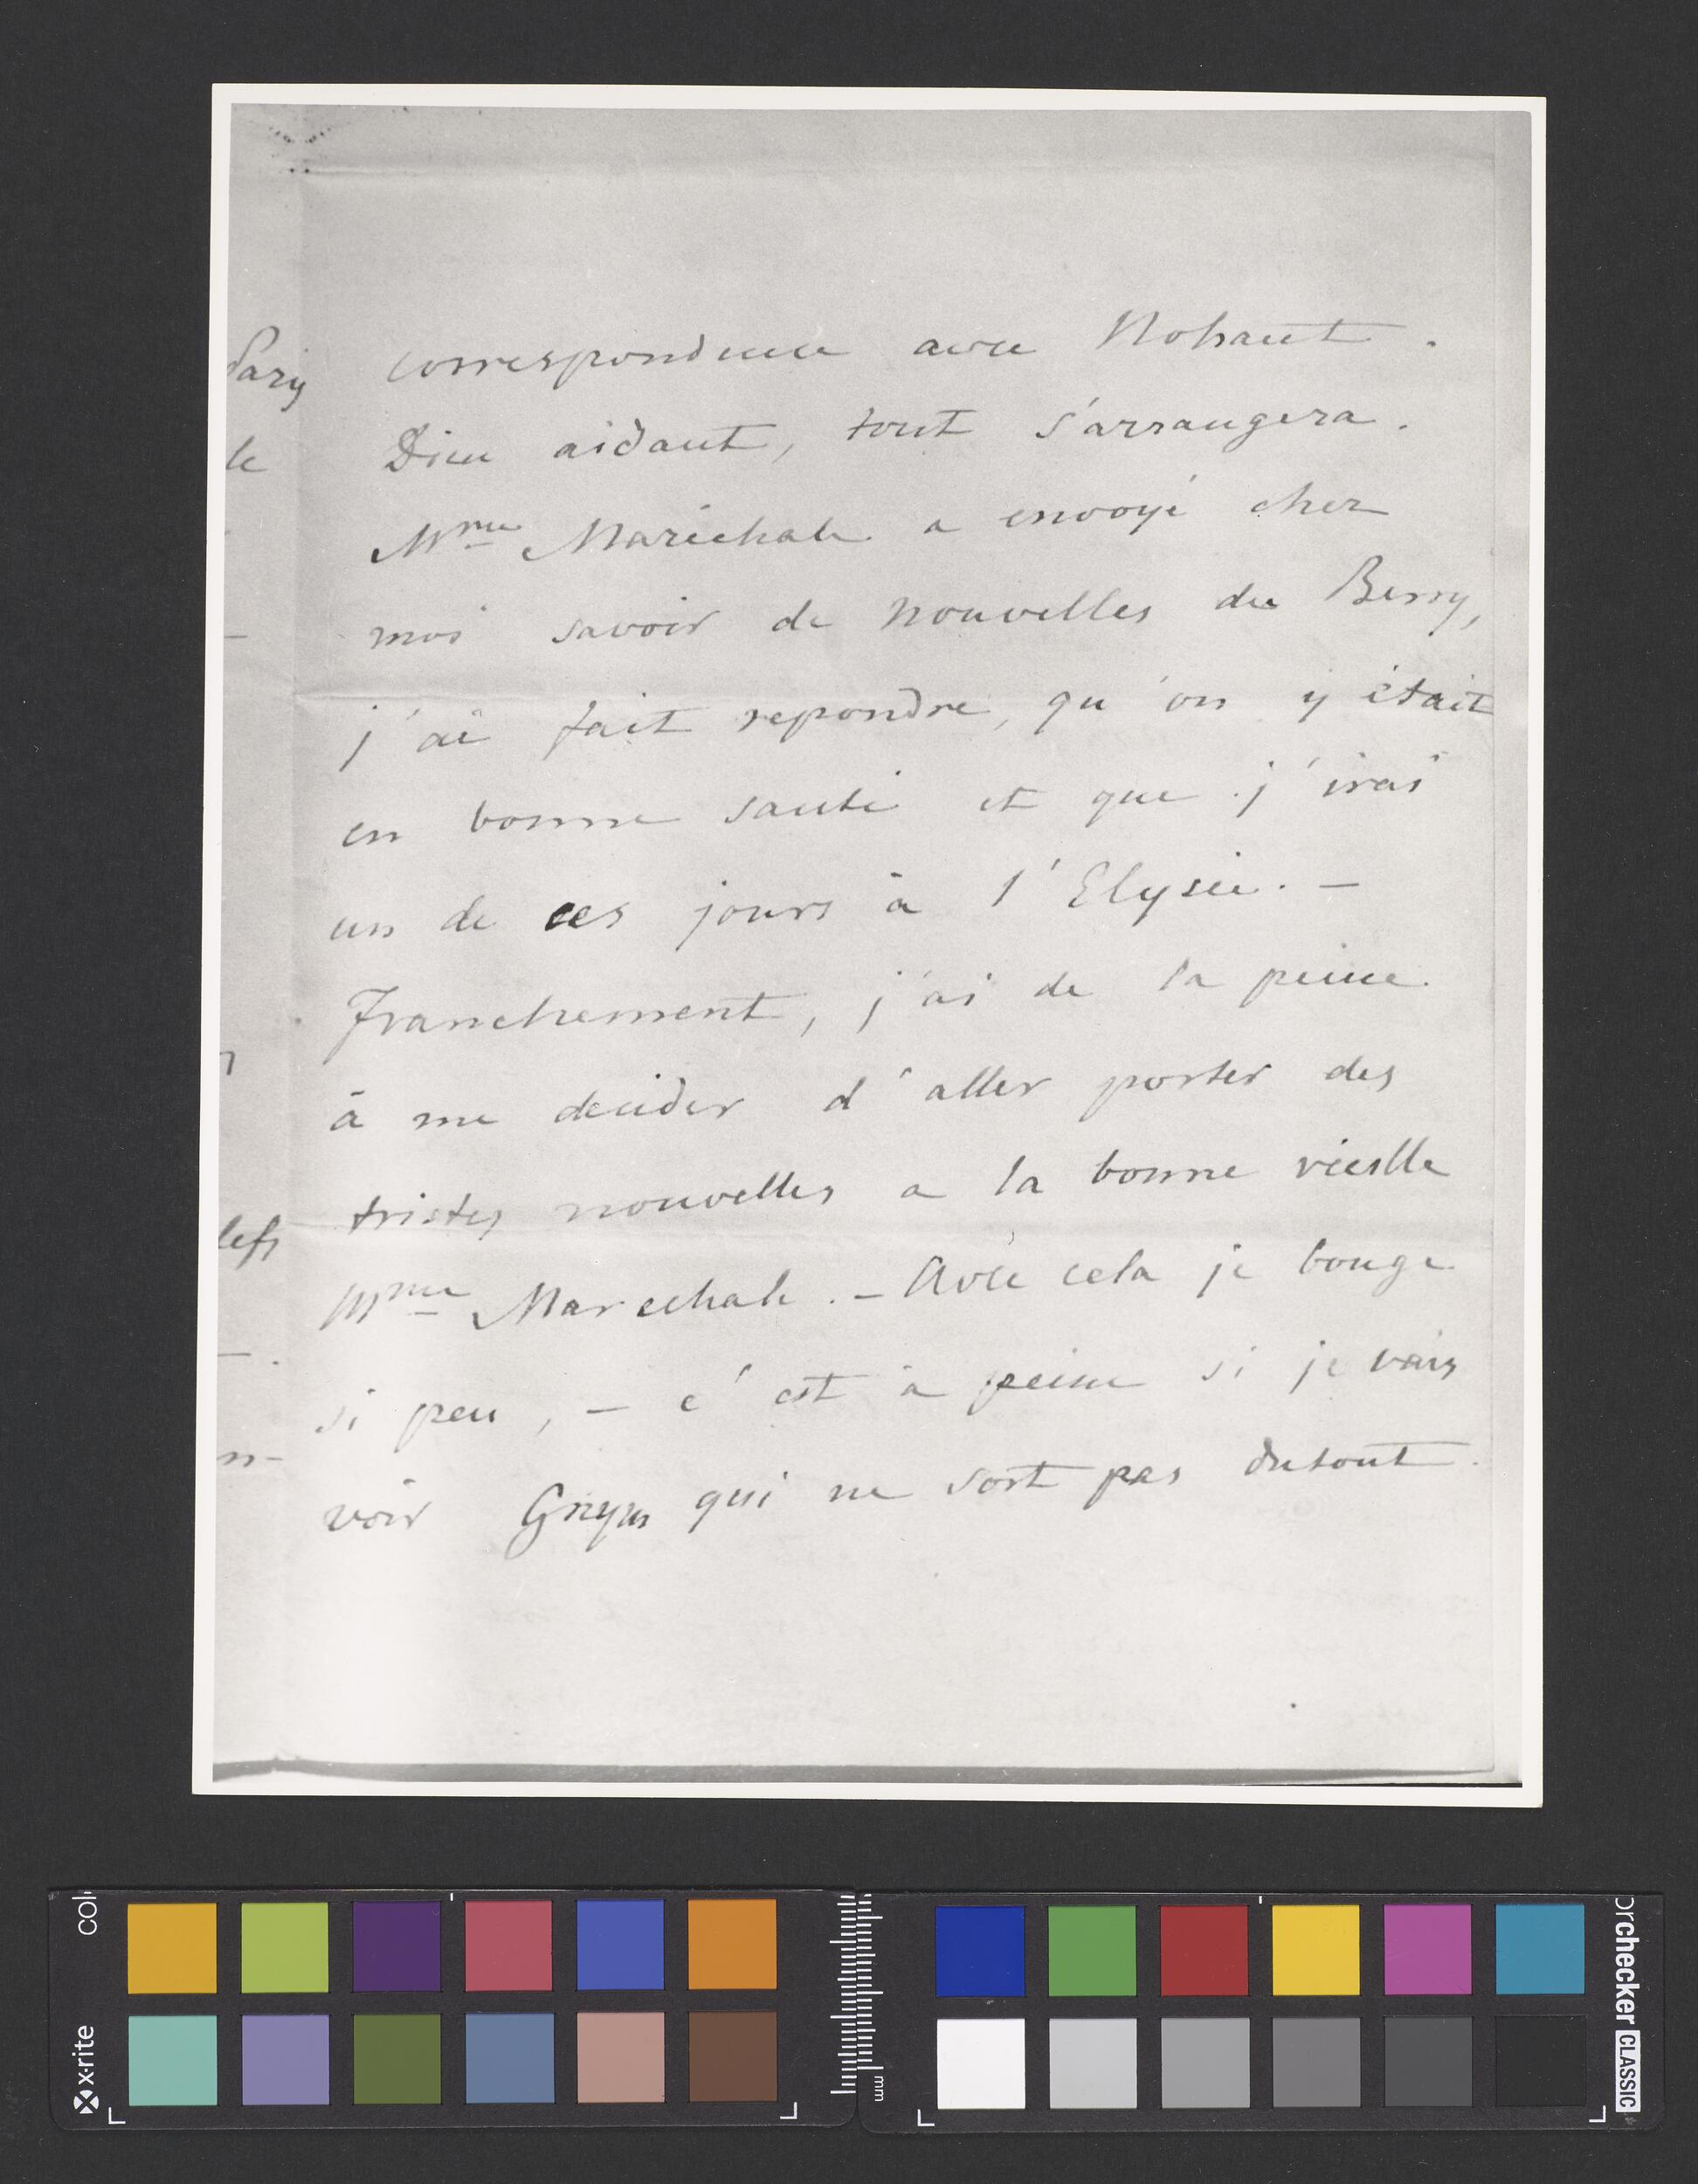 correspondence avec Nohant.
Dieu aidant, tout s'arrangera.
Mme Maréchale a envoyé chez
moi savoir de nouvelles du Berry,
j'ai fait repondre, qu'on y était
en bonne santé et que j'irai
un de ces jours à l'Elysée. —
Franchement, j'ai de la peine
à me decider d'aller porter des
tristes nouvelles a la bonne vieille
Mme Marechale. — Avec cela je bouge
si peu, — c'est à peine si je vais
voir Grzym qui ne sort pas dutout.
Pary
le
lefs
n-
x-rite
colorchecker CLASSIC
mm